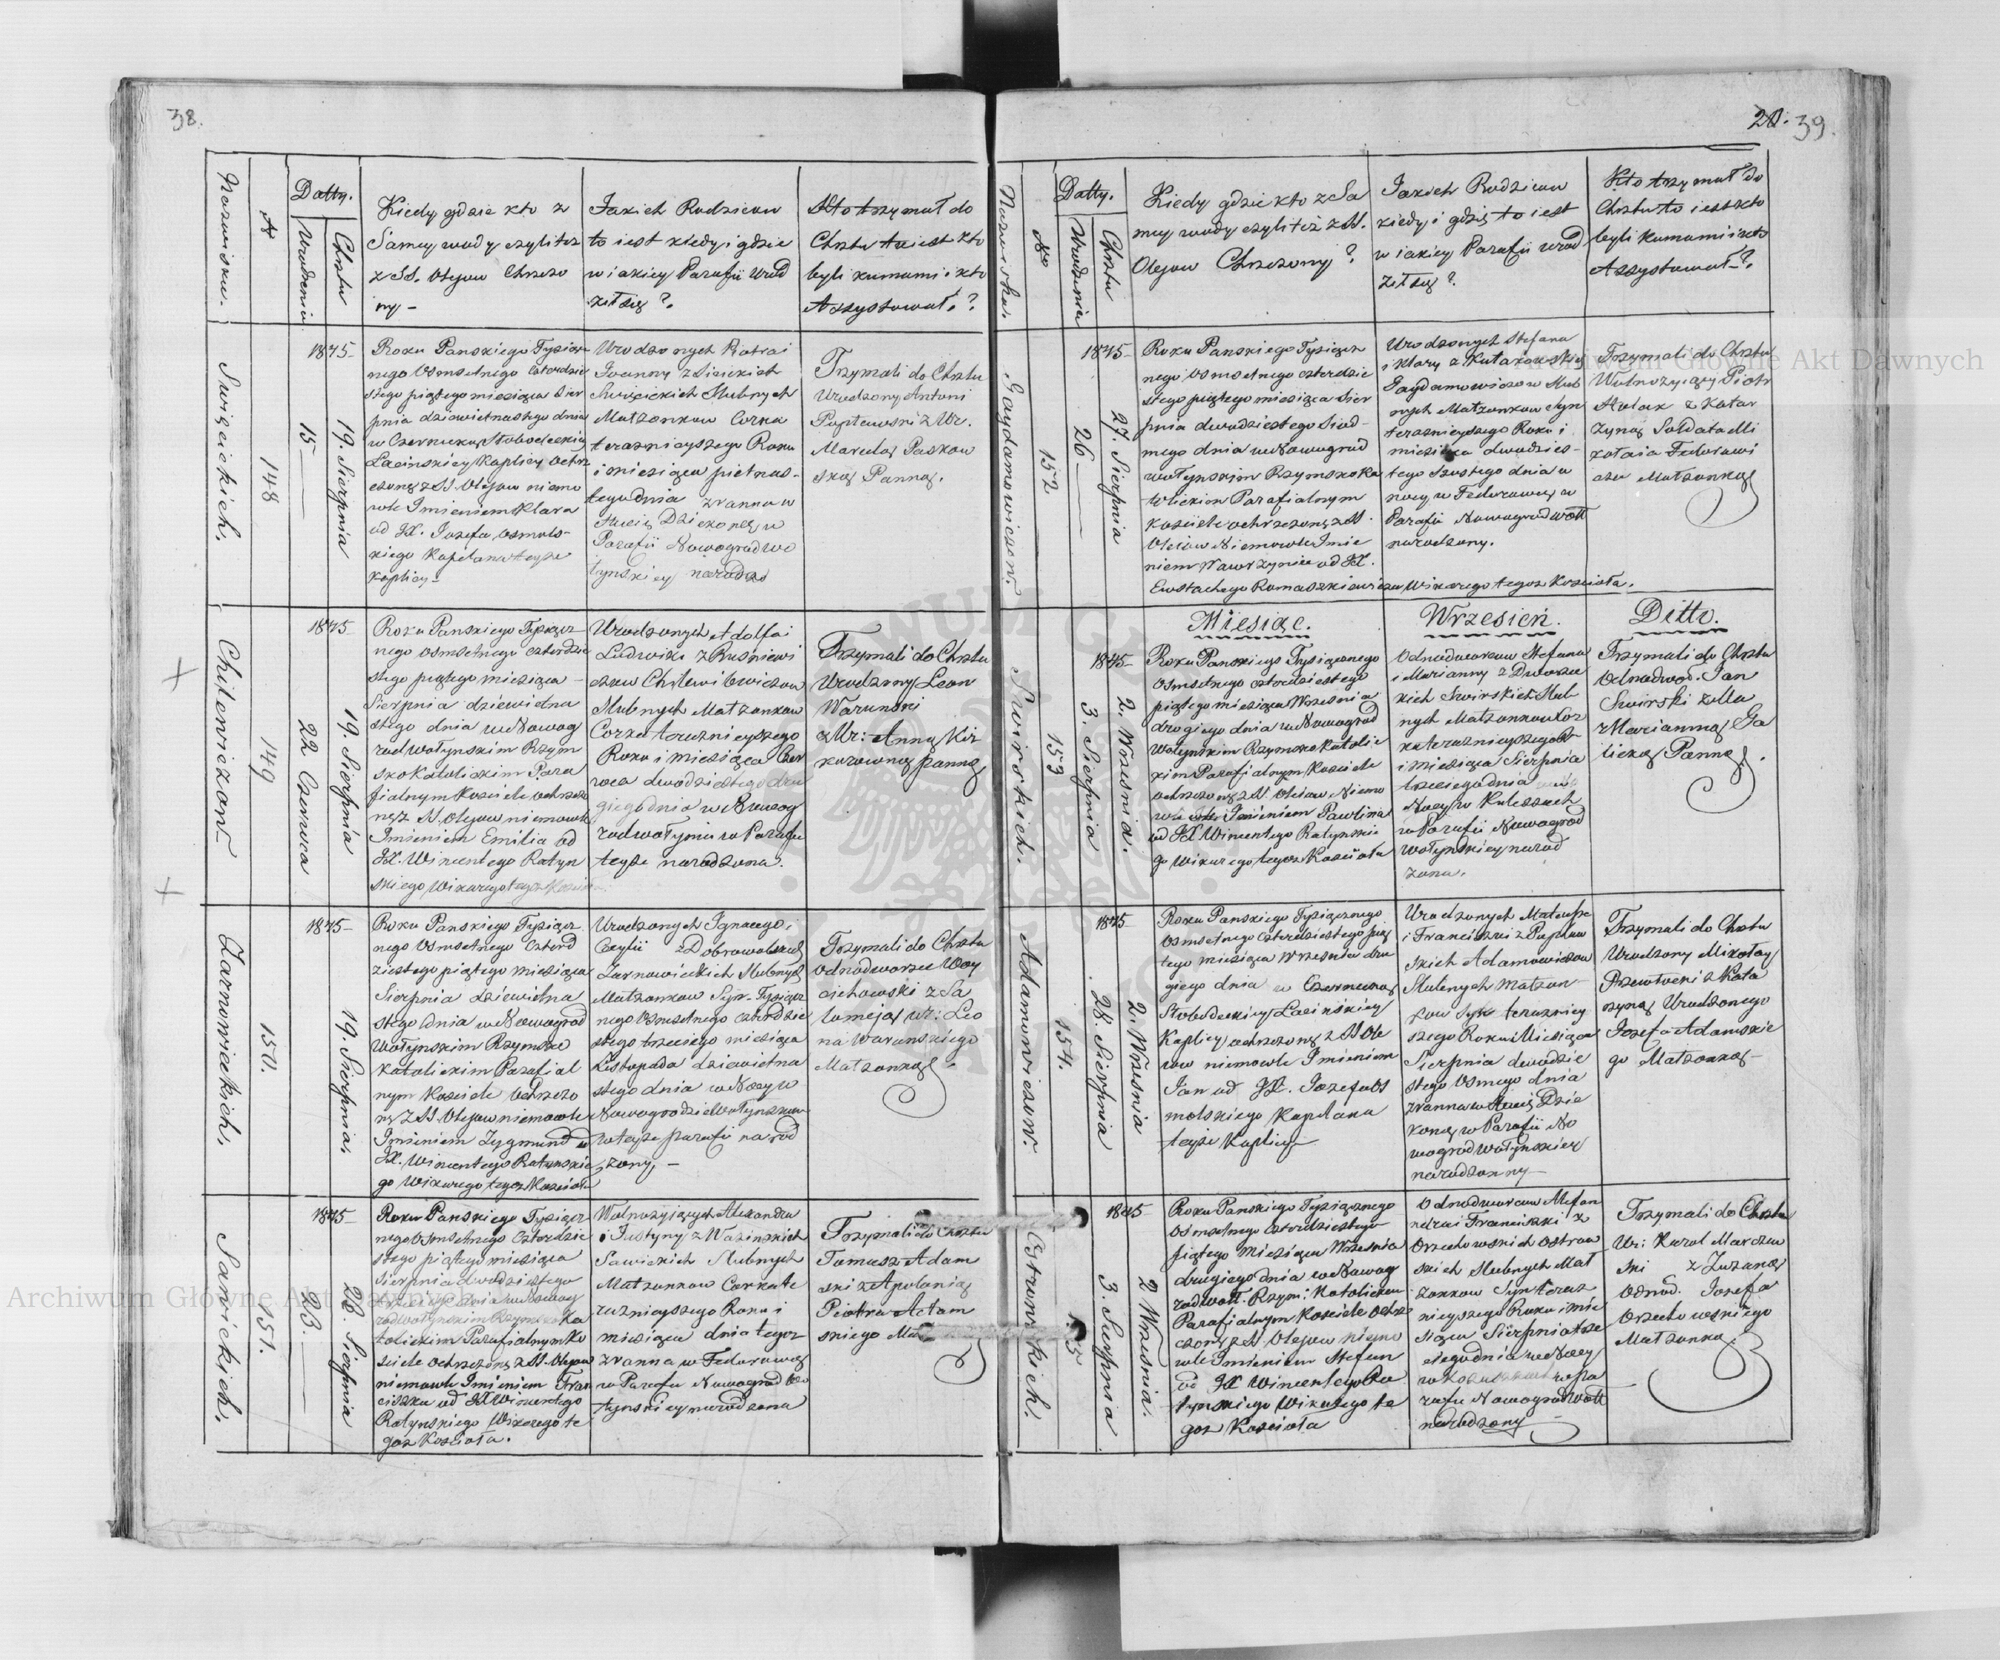 38.
Nazwisku.
N
Datty.
Urodzenia
Chrztu
Kiedy gdzie kto z
Samey wody czyli tez
z SS. Olejow Chrzczo
ny –
Jakich Rodzicow
to iest kiedy i gdzie
w iakiey Parafii Urod
ził się ?.
Kto trzymał do
Chrztu to iest kto
byli kumami i kto
Assystował. ?
Swięcickich.
148
1845 –
15 –
19. Sierpnia
Roku Panskiego Tysiącz
nego Osmsetnego czterdzie
stego piątego miesiąca Sier
pnia dziewietnastego dnia
w Czerwonej Słobodeckiey
Łacinskiey Kaplicy ochrz
czoną z SS Olejow niemo
wle Imieniem Klara
od JX. Jozefa Osmols-
kiego Kapelana teyze
kaplicy –
Urodzonych
Joanny z
Swięcickich slubnych
Małzonkow Corka
terazneyszego Roku
i miesiąca pietnas-
tego dnia zranna w
Parafii Nowogrodwo
łynskiey narodzo
Trzymali do Chrztu
Urodzony Antoni
z Ur.
Panną.
Chilewiczow
149
1845
22 Czerwca
19. Sierpnia
Roku Panskiego Tysiącz
nego Osmsetnego czterdzie
stego piątego miesiąca –
Sierpnia dziewietna
stego dnia w Nowog
rodwołynskim Rzym
skokatolickim Para
fialnym Kosciele ochrzczo
ną z SS. Olejow niemowle
Imieniem Emilia od
JX. Wincentego Ratyn
skiego Wikarego tegoz Koscio
Urodzonych Adolfa i
Ludwiki z Rusniewi
czow Chilewiczow
slubnych Małzonkow
Corka terazneyszego
Roku i miesiąca Czer
wca dwódziestego dru
giego dnia w Nowog
rodwołyniu w Parafii
teyze narodzona.
Trzymali do Chrztu
Urodzony Leon
Warunski
z Ur: Anną Kiz
kurowną panną
Zarnowieckich.
150.
1845 –
19. Sierpnia
Roku Panskiego Tysiącz
nego Osmsetnego Czterd
ziestego piątego miesiąca
Sierpnia dziewietna
stego dnia w Nowogrod
wołynskim Rzymsko
katolickim Parafial
nym Kosciele ochrzczo
ny z SS. Olejow niemowle
Imieniem Zygmund od
JX. Wincentego Ratynskie
go Wikarego tegoz Koscioła
Urodzonych Ignacego i
Cecylii z Dobrowolskich
Zarnowieckich slubnych
Małzonkow Syn – Tysiącz
nego Osmsetnego czterdzie
stego trzeciego miesiąca
Listopada dziewietna
stego dnia w Nocy w
Nowogrodzie Wołynskim
w teyze parafii narod
zony, –
Trzymali do Chrztu
Odnodworzec Woy
ciechowski z Sa
lomeją Ur: Leo
na Warunskiego
Małzonką.
Sawickich.
151.
1845 –
23. –
23. Sierpnia
Roku Panskiego Tysiącz
nego Osmsetnego Czterdzie
stego piątego miesiąca
Sierpnia dwodziestego
trzeciego dnia w Nowog
rodwołynskim Rzymskoka
tolickim Parafialnym Ko
sciele ochrzczoną z SS. Olejow
niemowle Imieniem Fran
ciszka od JX Wincentego
Ratynskiego Wikarego te
goz Koscioła.
Wolnozyiących Alexandra
i Justyny z
Sawickich slubnych
Małzonkow Corka te
razneyszego Roku i
miesiąca dnia tegoz
zranna w Fedorowce
w Parafii Nowogrodwo
łynskiey narodzona
Trzymali do Chrztu
Tomasz Adam
ski z Apolonią
Piotra Adam
skiego
20. 39.
Nazwiska.
No
Datty.
Urodzenia
Chrztu
Kiedy gdzie kto z Sa
mey wody czyli tez z SS.
Olejow Chrzczony ?
Jakich Rodzicow
kiedy i gdzie to iest
w iakiey Parafii urod
ził się ?
Kto trzymał do
Chrztu to iest kto
byli Kumami i kto
Assystował – ?
Gaydamowiczow.
152
1845 –
26 –
27. Sierpnia
Roku Panskiego Tysiącz
nego Osmsetnego czterdzie
stego piątego miesiąca Sier
pnia dwudziestego Siod
mego dnia w Nowogrod
wołynskim Rzymskoka
tolickim Parafialnym
Kosciele ochrzczony z SS.
Olejow Niemowle Imie
niem Wawrzyniec od JX.
Eustachego Romaszkiewicza Wikarego tegoz Koscioła.
Urodzonych Stefana
i Klary z
Gaydamowiczow slub
nych Małzonkow Syn
terazneyszego Roku i
miesiąca dwudzies-
tego szostego dnia w
nocy w Fedorowce w
Parafii Nowogrodwoł
narodzony.
Trzymali do Chrztu
Wolnozyjący Piotr
z Katar
zyną Soldata Mi
kołaia Fedorowi
cza Małzonką
Miesiąc. Wrzesień. Ditto.
Swirskich.
153
1845 –
3. Sierpnia
2. Wrzesnia.
Roku Panskiego Tysiącznego
Osmsetnego czterdziestego
piątego miesiąca Wrzesnia
drugiego dnia w Nowogrod
Wołynskim Rzymskokatolic
kim Parafialnym Kosciele
ochrzczoną z SS. Olejow Niemo
wle Imieniem Pawlina
od JX Wincentego Ratynskie
go Wikarego tegoz Koscioła
Odnodworcow Stefana
i Marianny z
Swirskich slub
nych Małzonkow Cor
ka terazneyszego R
i miesiąca Sierpnia
trzeciego dnia
Nocy w Kuleszach
w Parafii Nowogrod
Wołynskiey narod
zona.
Trzymali do Chrztu
Odnodwod. Jan
Swirski z
Marianną Ga
licką Panną.
Adamowiczow.
154.
1845
28. Sierpnia
2. Wrzesnia
Roku Panskiego Tysiącznego
Osmsetnego Czterdziestego pią
tego miesiąca Wrzesnia dru
giego dnia w Czerwoney
Słobodeckiey Łacinskiey
Kaplicy ochrzczony z SS Ole
iow niemowle Imieniem
Jan od JX. Jozefa Os
molskiego Kapelana
teyze Kaplicy –
Urodzonych Mateusza
i Franciszki z Papław
skich Adamowiczow
slubnych Małzon-
kow Syn terazniey
szego Roku i Miesiąca
Sierpnia dwodzie
stego Osmego dnia
zranna w
w Parafii No
wogrodwołynskiey
narodzonny –
Trzymali do Chrztu
Urodzony Mikołay
z Kata
rzyną Urodzonego
Jozefa Adamskie
go Małzonką –
Ostrowskich.
155
1845 –
3. Sierpnia
2 Wrzesnia.
Roku Panskiego Tysiącznego
Osmsetnego czterdziestego
piątego Miesiąca Wrzesnia
drugiego dnia w Nowog
rodwoł. Rzym: Katolickim
Parafialnym Kosciele ochrz
czony z SS. Olejow niemo
wle Imieniem Stefan
od JX Wincentego Ra
tynskiego Wikarego te
goz Koscioła
Odnodworcow
i Franciszki z
Orzechowskich Ostrow
skich slubnych Mał
zonkow Syn teraz
nieyszego Roku i mie
siąca Sierpnia trze
ciego dnia w Nocy
w Pa
rafii Nowogrodwoł
narodzony
Trzymali do Chrztu
Ur: Karol Marczew
ski z Zuzanną
Odnod. Jozefa
Orzechowskiego
Małzonką.
Archiwum Główne Akt Dawnych
Archiwum Główne Akt Dawnych